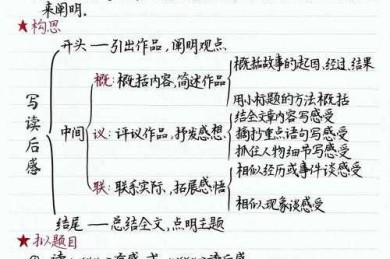 来阐明.
★构思
开头——引出作品,阐明观点
写读后感
中间
概:概括内容,简述作品
概括故事的起因、经过、结果
用小标题的方法概括
议:评议作品,抒发感想
结全文章内容写感受
摘抄重点语句写感受
抓住人物细节写感受
联:联系实际、拓展感悟
相似经历或事件谈感受
相似现象谈感受
结尾——总结全文,点明主题
★拟题目